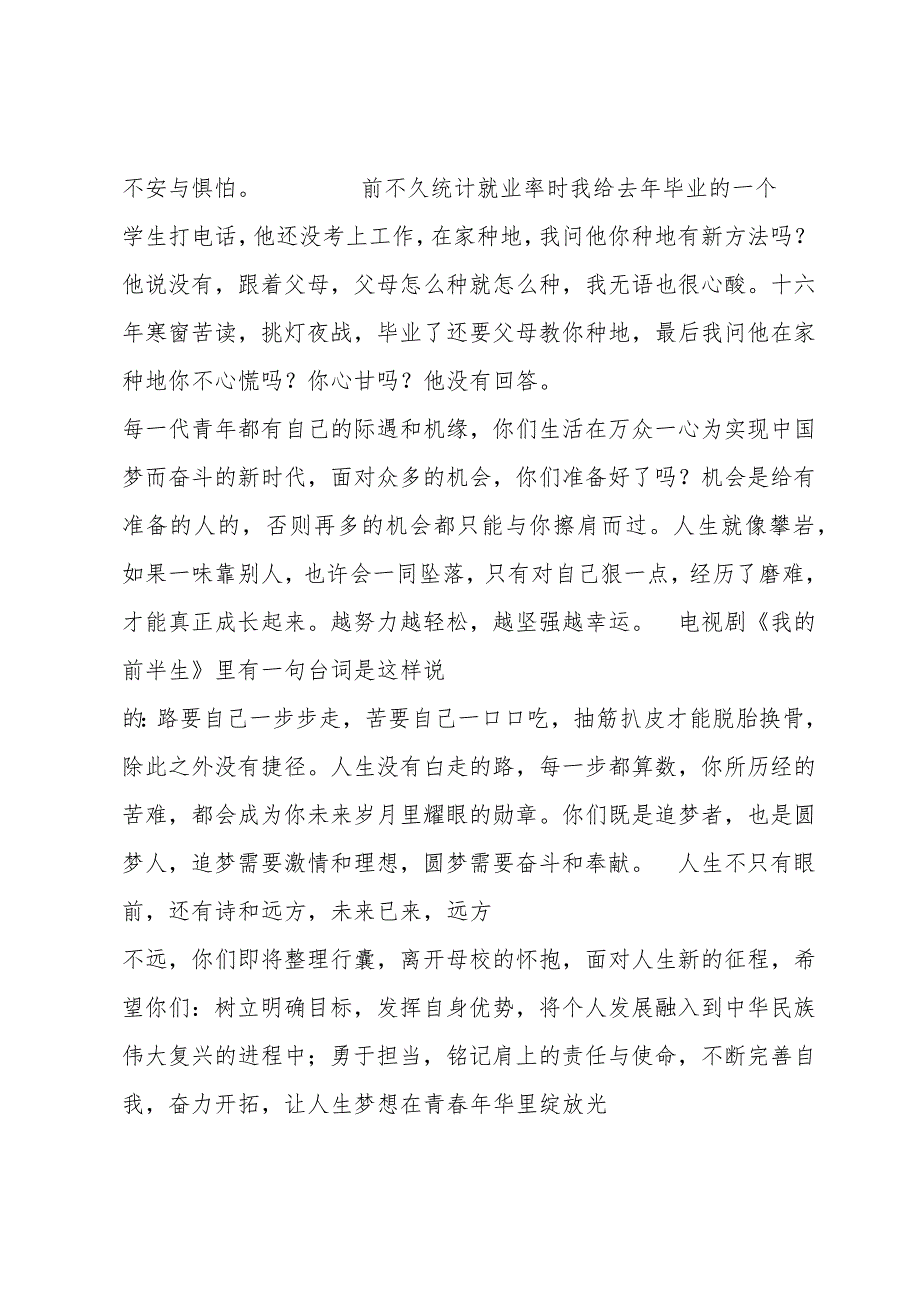 不安与惧怕。 前不久统计就业率时我给去年毕业的一个
学生打电话，他还没考上工作，在家种地，我问他你种地有新方法吗？
他说没有，跟着父母，父母怎么种就怎么种，我无语也很心酸。十六
年寒窗苦读，挑灯夜战，毕业了还要父母教你种地，最后我问他在家
种地你不心慌吗？你心甘吗？他没有回答。
每一代青年都有自己的际遇和机缘，你们生活在万众一心为实现中国
梦而奋斗的新时代，面对众多的机会，你们准备好了吗？机会是给有
准备的人的，否则再多的机会都只能与你擦肩而过。人生就像攀岩，
如果一味靠别人，也许会一同坠落，只有对自己狠一点，经历了磨难，
才能真正成长起来。越努力越轻松，越坚强越幸运。 电视剧《我的
前半生》里有一句台词是这样说
的：路要自己一步步走，苦要自己一口口吃，抽筋扒皮才能脱胎换骨，
除此之外没有捷径。人生没有白走的路，每一步都算数，你所历经的
苦难，都会成为你未来岁月里耀眼的勋章。你们既是追梦者，也是圆
梦人，追梦需要激情和理想，圆梦需要奋斗和奉献。 人生不只有眼
前，还有诗和远方，未来已来，远方
不远，你们即将整理行囊，离开母校的怀抱，面对人生新的征程，希
望你们：树立明确目标，发挥自身优势，将个人发展融入到中华民族
伟大复兴的进程中；勇于担当，铭记肩上的责任与使命，不断完善自
我，奋力开拓，让人生梦想在青春年华里绽放光